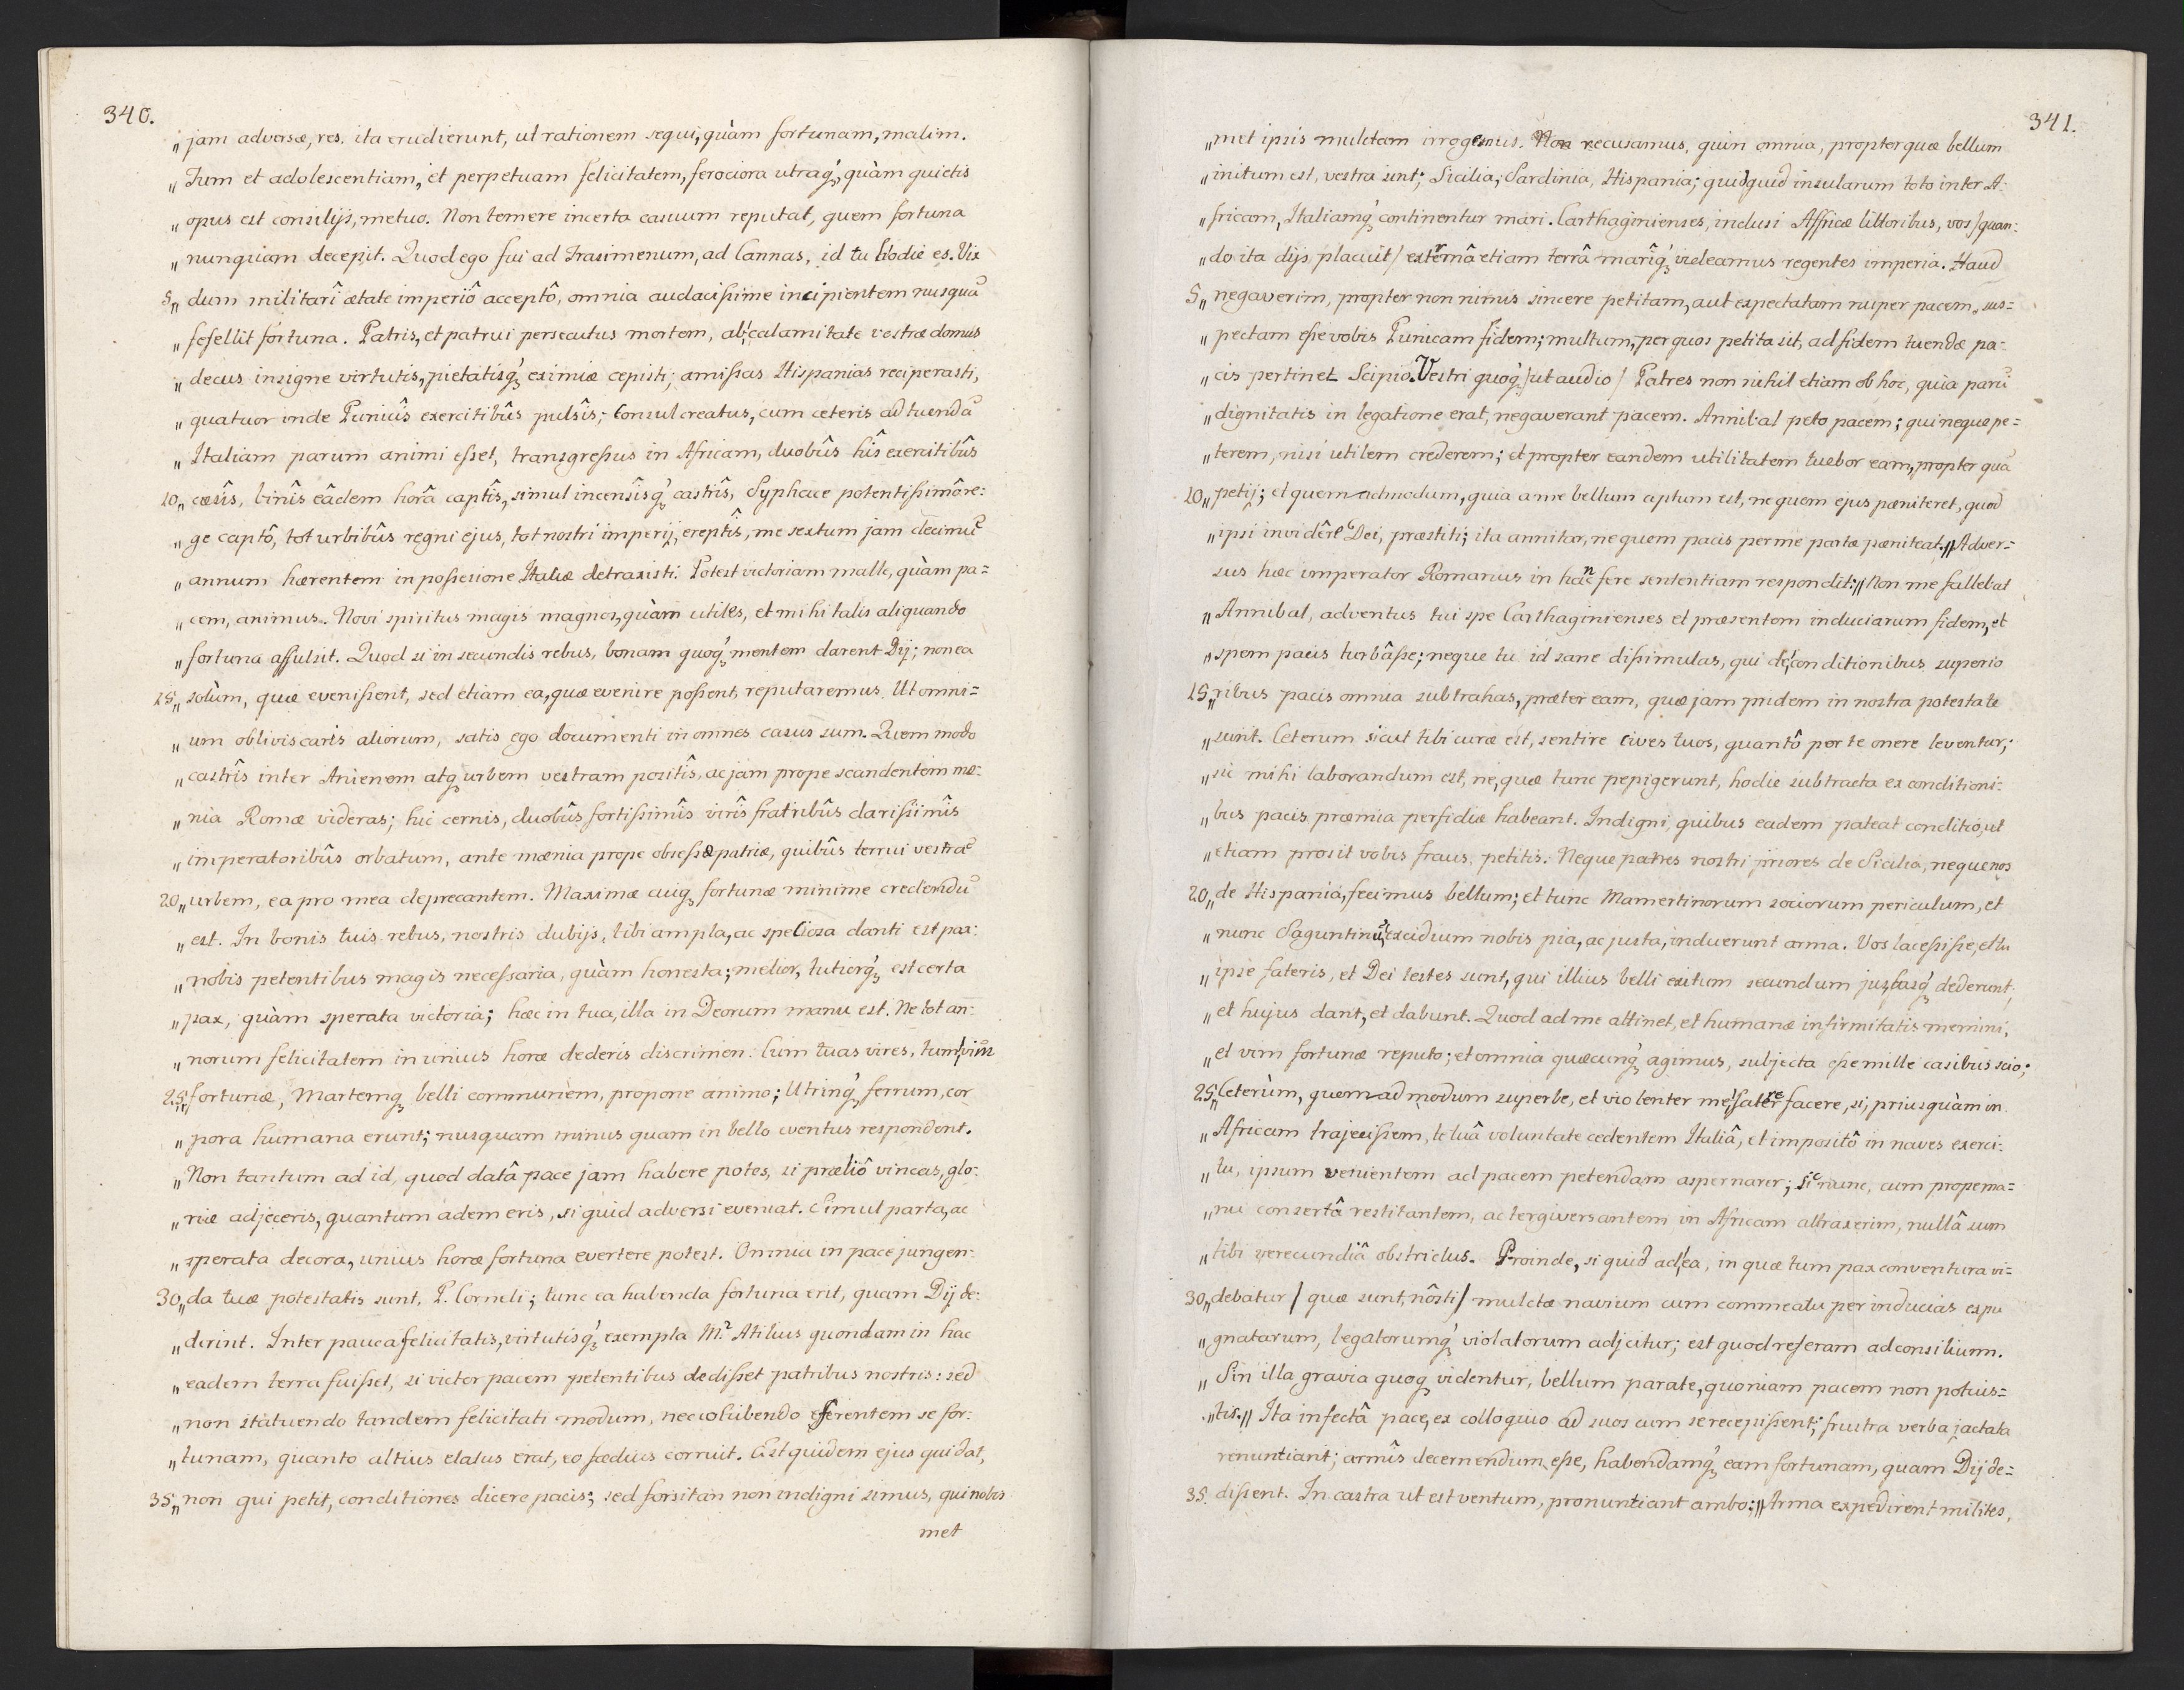 340.
„ jam adversæ, res. ita erudierunt, ut rationem sequi, quàm fortunam, malim.
„ Tum et adolescentiam, et perpetuam felicitatem, ferociora utraq́ꝫ, quàm quietis
„ opus est consilijs, metuo. Non temere incerta casuum reputat, quem fortuna
„ nunquam decepit. Quod ego fui ad Trasimenum, ad Cannas, id tu hodie es. Vix
5„ dum militari ætate imperiô acceptô, omnia audacißime incipientem nusquã
„ fefellit fortuna. Patris, et patrui persecutus mortem, ab calamitate vestræ domus
„ decus insigne virtutis, pietatisq́ꝫ eximiæ cepisti; amißas Hispanias reciperasti,
„ quatuor inde Punicîs exercitibûs pulsîs; Consul creatus, cum ceteris ad tuendã
„ Italiam parum animi eßet, transgreßus in Africam, duobûs hîs exercitibûs
10„ cæsîs, binîs eâdem horâ captîs, simul incensîsq́ꝫ castrîs, Syphace potentißimô re:
„ ge captô, tot urbibûs regni ejus, tot nostri imperij, ereptîs, me sextum jam decimũ
„ annum hærentem in poßesione Italiæ detraxisti. Potest victoriam malle, quàm pa=
„ cem, animus. Novi spiritus magis magnos, quàm utiles, et mihi talis aliquando
„ fortuna affulsit. Quod si in secundis rebus, bonam quoq́ꝫ mentem darent Dij; non ea
15„ solùm, quæ evenißent, sed etiam ea, quæ evenire poßent, reputaremus. Ut omni=
„ um obliviscaris aliorum, satis ego documenti in omnes casus sum. Quem modo
„ castrîs inter Anienem atqꝫ urbem vestram positîs, ac jam prope scandentem mœ:
„ nia Romæ videras; hic cernis, duobûs fortißimîs virîs fratribûs clarißimîs
„ imperatoribûs orbatum, ante mœnia prope obseßæ patriæ, quibûs terrui vestrã
20„ urbem, ea pro mea deprecantem. Maximæ cuiqꝫ fortunæ minime credendũ
„ est. In bonis tuis rebus, nostris dubijs, tibi ampla, ac speciosa danti est pax:
„ nobis petentibus magis neceßaria, quàm honesta; melior, tutiorq́ꝫ est certa
„ pax, quàm sperata victoria; hæc in tua, illa in Deorum manu est. Ne tot an:
„ norum felicitatem in unius horæ dederis discrimen. Cum tuas vires, tum vim
25„ fortunæ, Martemqꝫ belli communem, propone animo; Utrinq́ꝫ ferrum, cor
„ pora humana erunt; nusquam minus quam in bello eventus respondent.
„ Non tantum ad id, quod datâ pace jam habere potes, si præliô vincas, glo:
„ riæ adjeceris, quantum ademeris, si quid adversi eveniat. Simul parta, ac
„ sperata decora, unius horæ fortuna evertere potest. Omnia in pace jungen:
30„ da tuæ potestatis sunt, P. Corneli; tunc ea habenda fortuna erit, quam Dij de:
„ derint. Inter pauca felicitatis, virtutisq́ꝫ exempla M.ʳ Atilius quondam in hac
„ eadem terra fuißet, si victor pacem petentibus dedißet patribus nostris: sed
„ non statuendo tandem felicitati modum, nec cohibendo efferentem se for:
„ tunam, quanto altius elatus erat, eo fœdius corruit. Est quidem ejus qui dat,
35„ non qui petit, conditiones dicere pacis; sed forsitan non indigni simus, qui nobis
met
341.
„ met ipsis mulctam irrogemus. Non recusamus, quin omnia, propter quæ bellum
„ initum est, vestra sint; Sicilia, Sardinia, Hispania; quidquid insularum toto inter A:
„ fricam, Italiamq́ꝫ continentur mari. Carthaginienses, inclusi Affricæ littoribus, vos / quan:
„ do ita dijs placuit / externâ etiam terrâ marîq́ꝫ videamus regentes imperia. Haud
5„ negaverim, propter non nimis sincere petitam, aut expectatam nuper pacem, sus=
„ pectam eße vobis Punicam fidem; multum, per quos petita sit, ad fidem tuendæ pa=
„ cis pertinet Scipio. Vestri quoq́ꝫ / ut audio / Patres non nihil etiam ob hoc, quia parũ
„ dignitatis in legatione erat, negaverant pacem. Annibal peto pacem; qui neque pe=
„ terem, nisi utilem crederem; et propter eandem utilitatem tuebor eam, propter quã
10„ petij; et quem admodum, quia a me bellum cęptum est, ne quem ejus pæniteret, quod
„ ipsi invidêre Dei, præstiti; ita annitar, ne quem pacis per me partæ pæniteat.// Adver=
sus hæc imperator Romanus in hanc fere sententiam respondit:// Non me fallebat
„ Annibal, adventus tui spe Carthaginienses et præsentem induciarum fidem, et
„ spem pacis turbâße; neque tu id sane dißimulas, qui de conditionibus superio
15„ ribus pacis omnia subtrahas, præter eam, quæ jam pridem in nostra potestate
„ sunt. Ceterum sicut tibi curæ est, sentire cives tuos, quantô per te onere leventur;
„ sic mihi laborandum est, ne, quæ tunc pepigerunt, hodie subtracta ex conditioni:
„ bus pacis præmia perfidiæ habeant. Indigni, quibus eadem pateat conditio, ut
„ etiam prosit vobis fraus, petitis. Neque patres nostri priores de Sicilia, neque nos
20„ de Hispania, fecimus bellum; et tunc Mamertinorum sociorum periculum, et
„ nunc Sagunti excidium nobis pia, ac justa, induerunt arma. Vos laceßiße, et tu
„ ipse fateris, et Dei testes sunt, qui illius belli exitum secundum jus fasq́ꝫ dederunt;
„ et hujus dant, et dabunt. Quod ad me attinet, et humanæ infirmitatis memini,
„ et vim fortunæ reputo; et omnia quæcunq́ꝫ agimus, subjecta eße mille casibus scio;
25„ Ceterùm, quem ad modum superbe, et violenter me faterer facere, si, priusquàm in
„ Africam trajecißem, te tuâ voluntate cedentem Italiâ, et impositô in naves exerci:
„ tu, ipsum venientem ad pacem petendam aspernarer; sic nunc, cum prope ma=
„ nu consertâ restitantem, ac tergiversantem in Africam attraxerim, nullâ sum
„ tibi verecundiâ obstrictus. Proinde, si quid ad ea, in quæ tum pax conventura vi=
30„ debatur / quæ sunt, nôsti / mulctæ navium cum commeatu per inducias expu
„ gnatarum, legatorumq́ꝫ violatorum adjicitur; est quod referam ad consilium.
„ Sin illa gravia quoqꝫ videntur, bellum parate, quoniam pacem non potuis=
„ tis.// Ita infectâ pace, ex colloquio ad suos cum se recepißent; frustra verba jactata
renuntiant; armîs decernendum eße, habendamq́ꝫ eam fortunam, quam Dij de=
35. dißent. In castra ut est ventum, pronuntiant ambo;// Arma expedirent milites,